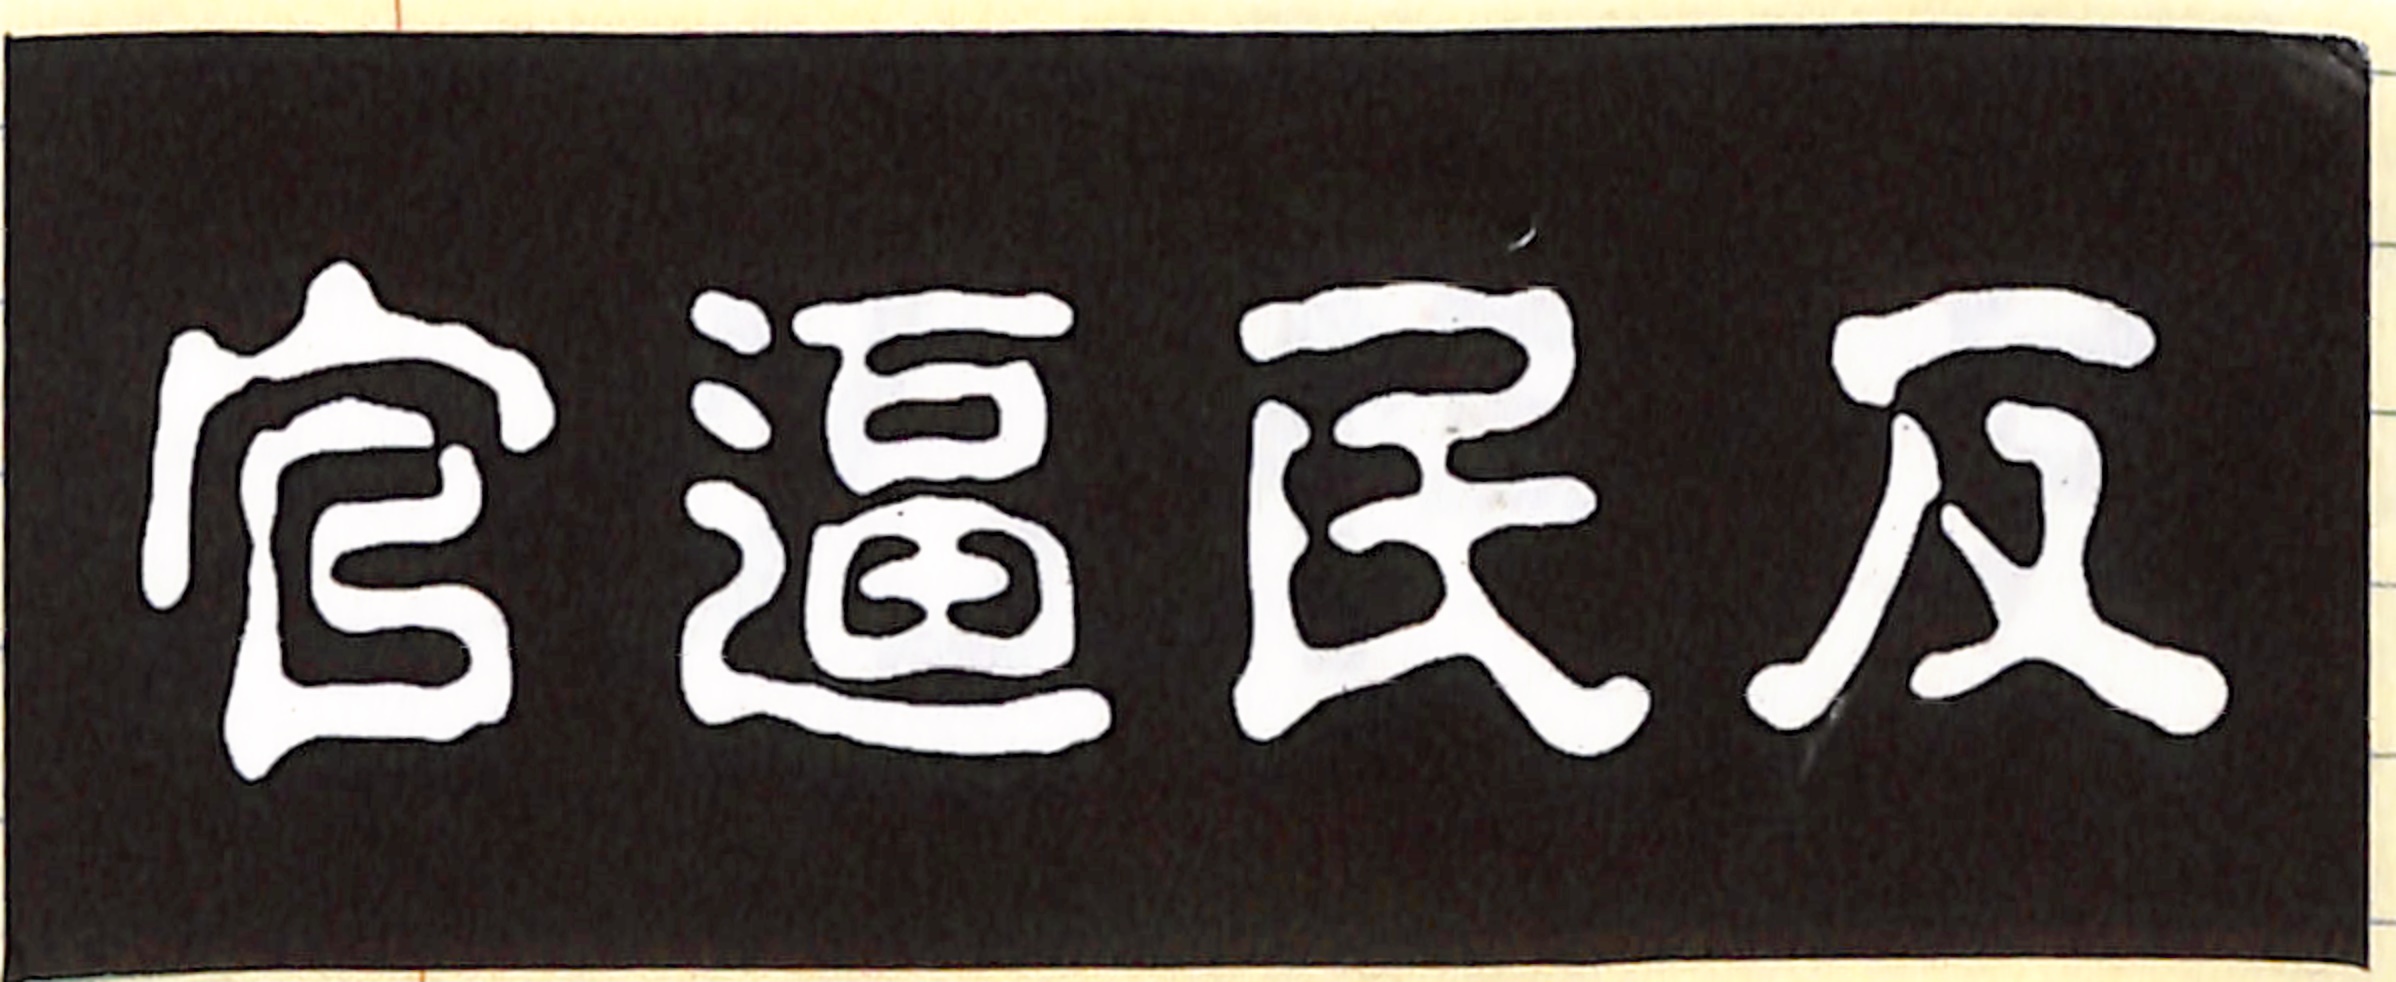 官逼民反